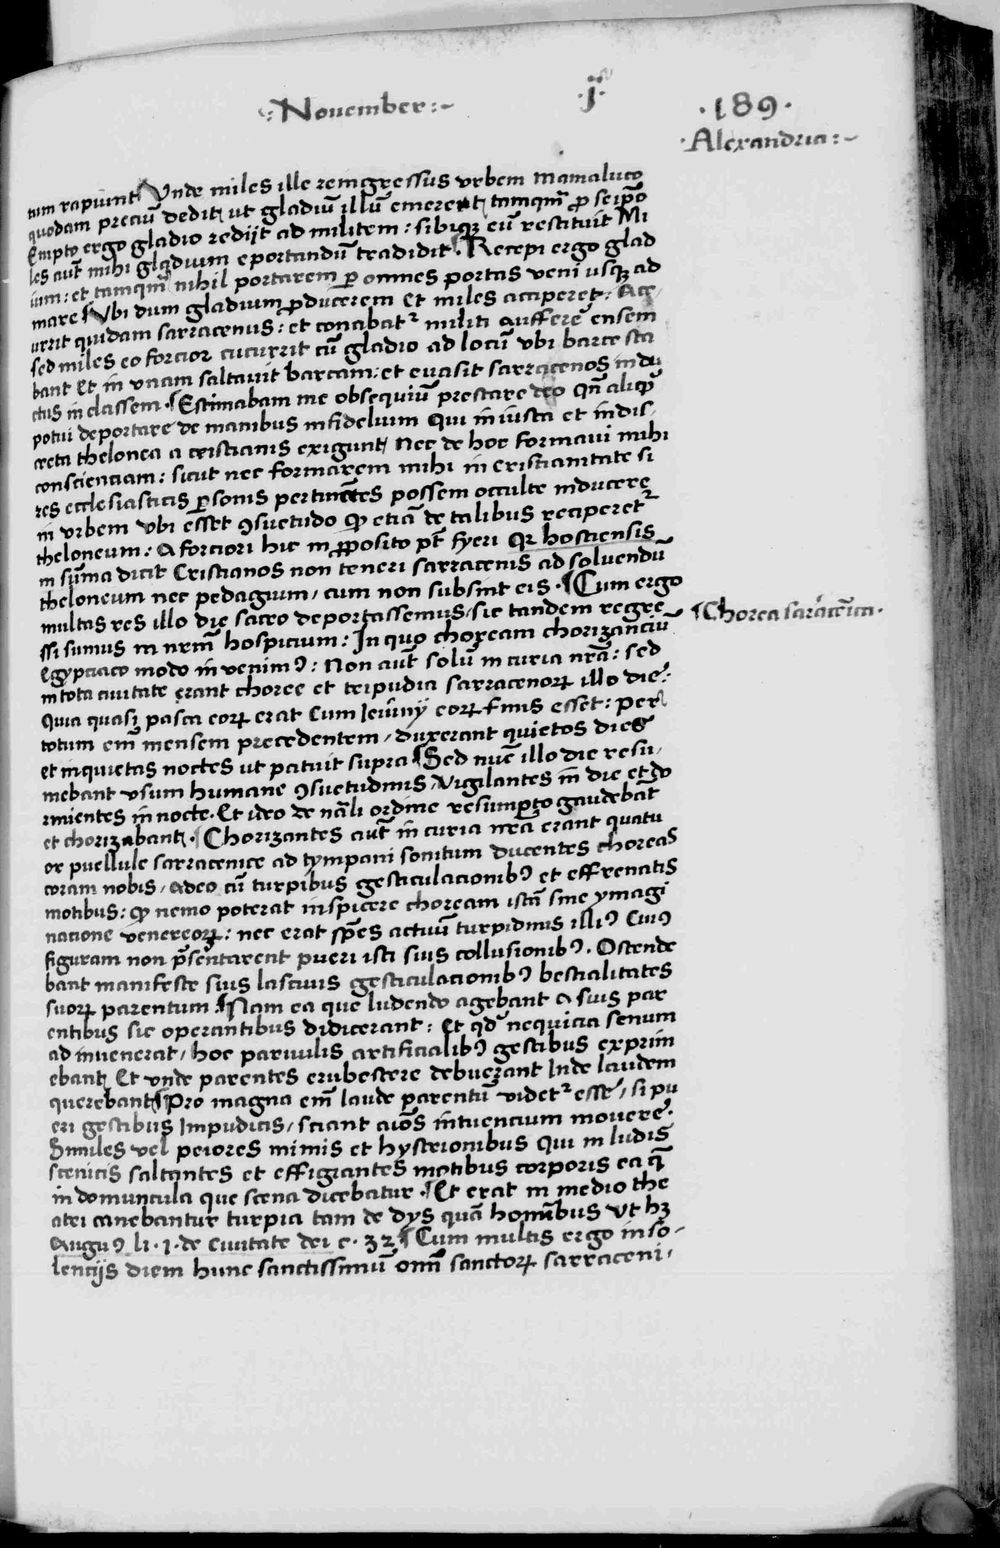 ·: November :~
·j·
·189·
·Alexandria:~
tum rapiunt Vnde miles ille reingressus vrbem mamaluco
quodam preciū dedit ut gladiū illū emeret tamqm̄ ꝓ seip̄o
Empto ergo gladio redijt ad militem : sibiqꝫ eū restituit Mi
les aut̄ mihi gladium eportandū tradidit · ¶ Recepi ergo glad
ium : et tamqm̄ nihil portarem ꝑ omnes portas veni usqꝫ ad
mare ¶ Vbi dum gladium ꝓducerem et miles acciperet : Acc
urrit quidam sarracenus : et conabat² militi aufferē ensem
sed miles eo forcior cucurrit cū gladio ad locū vbi barce sta
bant Et in vnam saltauit barcam : et euasit sarracenos indu
ctus in classem · ¶ Estimabam me obsequiū prestare deo qn̄ aliqͥd
potui deportare de manibus infidelium Qui iniusta et indis-
creta thelonea a cristianis exigunt Nec de hoc formaui mihi
conscienciam : sicut nec formarem mihi in cristianitate si
res ecclesiasticis ꝑsonis pertinētes possem occulte inducere
in vrbem vbi esset ꝯsuetudo qͥ etiā de talibus reciperet²
theloneum : A forciori hic in ꝓposito pt̄ fyeri Qꝛ hostiensis
in sūma dicit Cristianos non teneri sarracenis ad soluendū
theloneum nec pedagium / cum non subsint eis · ¶ Cum ergo
multas res illo die sacro deportassemus / sic tandem regre
ssi sumus in nrm̄ hospicium : In quo choream chorizanciū
Egypciaco modo inuenimꝰ : Non aut̄ solū in curia nrā : sed
in tota ciuitate erant choree et tripudia sarracenoꝝ illo die :
Quia quasi pasca eoꝝ erat Cum Ieiunij eoꝝ finis esset : per
totum em̄ mensem precedentem / duxerant quietos dies
et inquietas noctes ut patuit supra ¶ Sed nūc illo die resu /
mebant vsum humane ꝯsuetudinis / Vigilantes in die et do
rmientes in nocte · Et ideo de nāli ordine resumpto gaudebāt
et chorizabant · ¶ Chorizantes aut̄ in curia nrā erant quatu
or puellule sarracenice ad tympani sonitum ducentes choreas
coram nobis / adeo cū turpibus gesticulacionibꝰ et effrenatis
motibus : qͥ nemo poterat inspicere choream istā sine ymagi
natione venereoꝝ : nec erat spēs actuū turpidinis illiꝰ Cuiꝰ
figuram non p̄sentarent pueri isti suis collusionibꝰ · Ostende
bant manifeste suis lasciuis gesticulacionibꝰ bestialitates
suoꝝ parentum ¶ Nam ea que ludendo agebant a suis par
entibus sic operantibus didicerant : Et qd̄ nequicia senum
adinuenerat / hoc paruulis artificialibꝰ gestibus exprim
ebant Et vnde parentes erubescere debuerant Inde laudem
querebant ¶ Pro magna em̄ laude parentū videt² esse / si pu
eri gestibus Impudicis / sciant aīos intuencium mouere ·
Similes vel peiores mimis et hystrionibus Qui in ludis
scenicis saltantes et effigiantes motibus corporis ea q̄
in domuncula que scena dicebatur · ¶ Et erat in medio the
atri canebantur turpia tam de dys quā hominibus Vt hꝫ
Auguꝰ li · 1 · de Ciuitate dei c · 32 ¶ Cum multis ergo inso-
lencijs diem hunc sanctissimū om̄ sanctoꝝ sarraceni /
¶ Chorea sarracēica ·